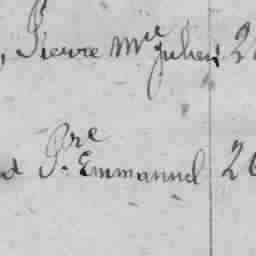 , Pierre Mie Julien 2
d Pre Emmanuel 26